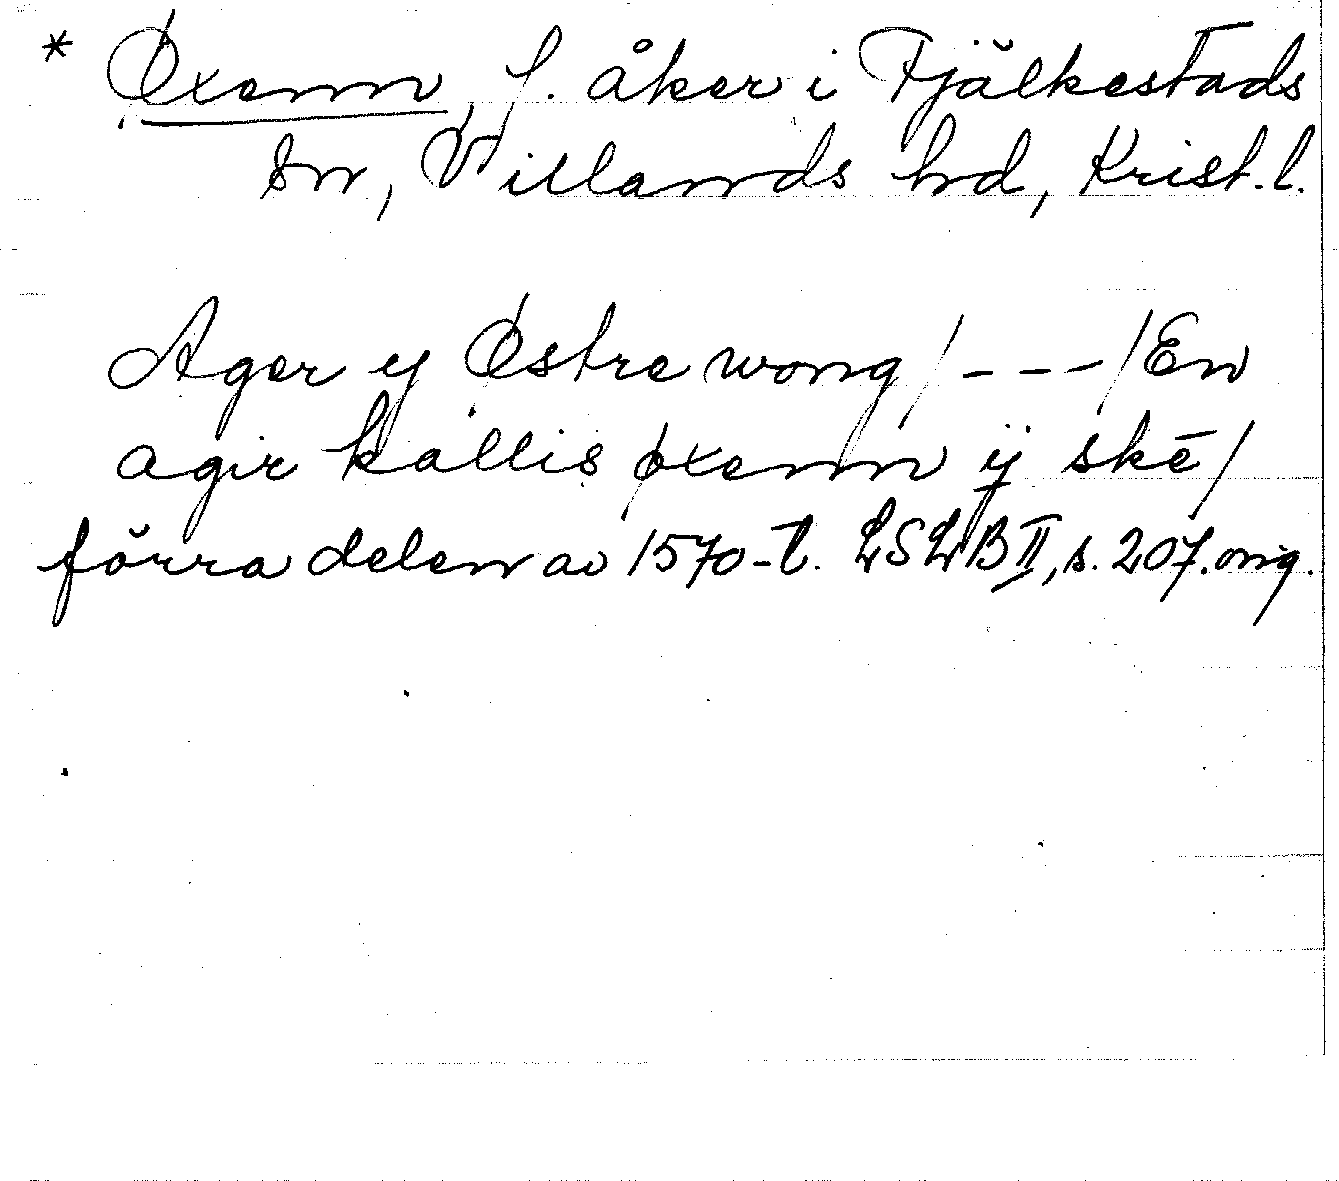 * Øxenn, f. åker i Fjälkestads
sn, Villands hd, Krist. l.
Ager y Østre wong /---/ En
agir kallis øxenn ÿ skē/
förra delen av 1570-t. LSLB II, s. 207. orig.